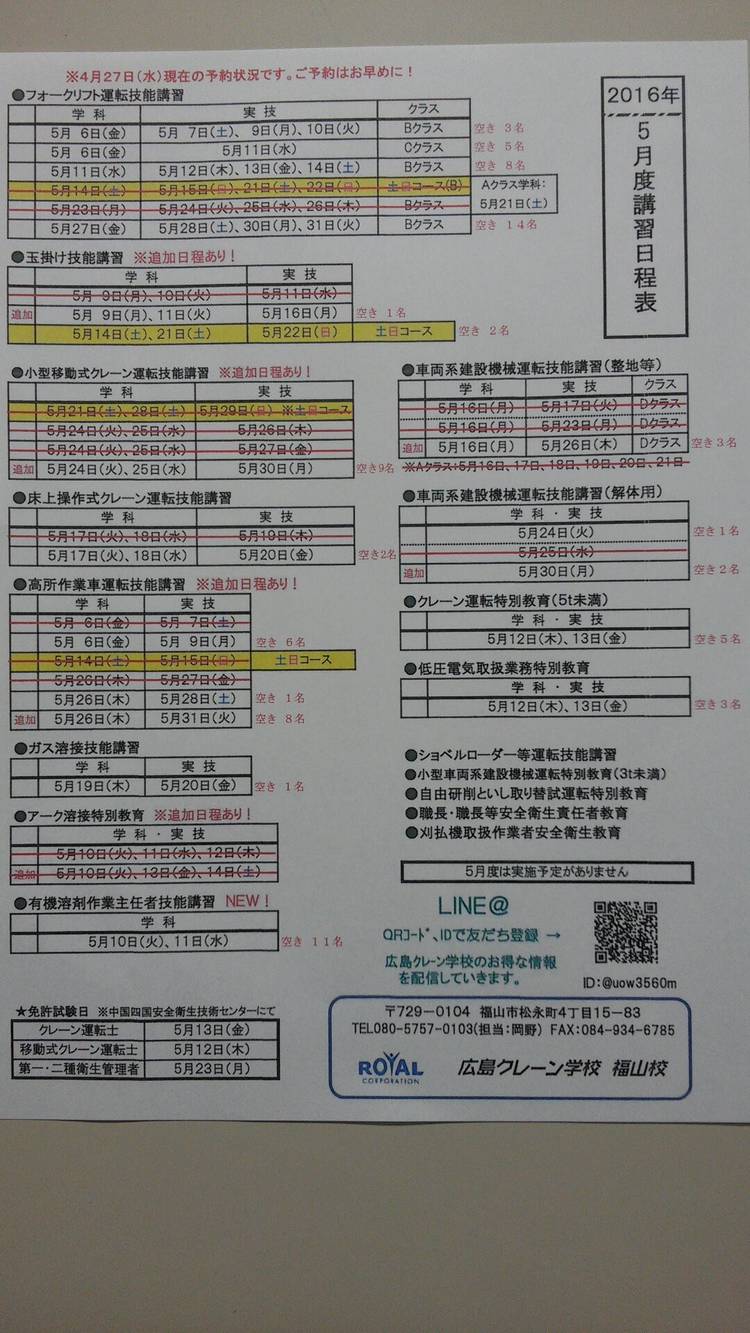 ※4月27日(水)現在の予約状況です。ご予約はお早めに！
2016年
5月度講習日程表
●フォークリフト運転技能講習
学科 実技 クラス
5月 6日(金) 5月 7日(土)、 9日(月)、10日(火) Bクラス 空き 3名
5月 6日(金) 5月11日(水) Cクラス 空き 5名
5月11日(水) 5月12日(木)、13日(金)、14日(土) Bクラス 空き 8名
5月14日(土) 5月15日(日)、21日(土)、22日(日) 土日コース(B) Aクラス学科:
5月23日(月) 5月24日(火)、25日(水)、26日(木) Bクラス 5月21日(土)
5月27日(金) 5月28日(土)、30日(月)、31日(火) Bクラス 空き 14名
●玉掛け技能講習 ※追加日程あり！
学科 実技
5月 9日(月)、10日(火) 5月11日(水)
追加 5月 9日(月)、11日(火) 5月16日(月) 空き 1名
5月14日(土)、21日(土) 5月22日(日) 土日コース 空き 2名
●小型移動式クレーン運転技能講習 ※追加日程あり！
学科 実技
5月21日(土)、28日(土) 5月29日(日) ※土日コース
5月24日(火)、25日(水) 5月26日(木)
5月24日(火)、25日(水) 5月27日(金)
追加 5月24日(火)、25日(水) 5月30日(月) 空き9名
●床上操作式クレーン運転技能講習
学科 実技
5月17日(火)、18日(水) 5月19日(木)
5月17日(火)、18日(水) 5月20日(金) 空き2名
●高所作業車運転技能講習 ※追加日程あり！
学科 実技
5月 6日(金) 5月 7日(土)
5月 6日(金) 5月 9日(月) 空き 6名
5月14日(土) 5月15日(日) 土日コース
5月26日(木) 5月27日(金)
5月26日(木) 5月28日(土) 空き 1名
追加 5月26日(木) 5月31日(火) 空き 8名
●ガス溶接技能講習
学科 実技
5月19日(木) 5月20日(金) 空き 1名
●アーク溶接特別教育 ※追加日程あり！
学科・実技
5月10日(火)、11日(水)、12日(木)
追加 5月10日(火)、13日(金)、14日(土)
●有機溶剤作業主任者技能講習 NEW！
学科
5月10日(火)、11日(水) 空き 11名
★免許試験日 ※中国四国安全衛生技術センターにて
クレーン運転士 5月13日(金)
移動式クレーン運転士 5月12日(木)
第一・二種衛生管理者 5月23日(月)
●車両系建設機械運転技能講習(整地等)
学科 実技 クラス
5月16日(月) 5月17日(火) Dクラス
5月16日(月) 5月23日(月) Dクラス
追加 5月16日(月) 5月26日(木) Dクラス 空き3名
※Aクラス:5月16日、17日、18日、19日、20日、21日
●車両系建設機械運転技能講習(解体用)
学科・実技
5月24日(火) 空き1名
5月25日(水)
追加 5月30日(月) 空き2名
●クレーン運転特別教育(5t未満)
学科・実技
5月12日(木)、13日(金) 空き5名
●低圧電気取扱業務特別教育
学科・実技
5月12日(木)、13日(金) 空き3名
●ショベルローダー等運転技能講習
●小型車両系建設機械運転特別教育(3t未満)
●自由研削といし取り替試運転特別教育
●職長・職長等安全衛生責任者教育
●刈払機取扱作業者安全衛生教育
5月度は実施予定がありません
LINE@
QRｺｰﾄﾞ、IDで友だち登録 →
広島クレーン学校のお得な情報
を配信していきます。
ID:@uow3560m
〒729-0104 福山市松永町4丁目15-83
TEL080-5757-0103(担当:岡野) FAX:084-934-6785
ROYAL CORPORATION 広島クレーン学校 福山校